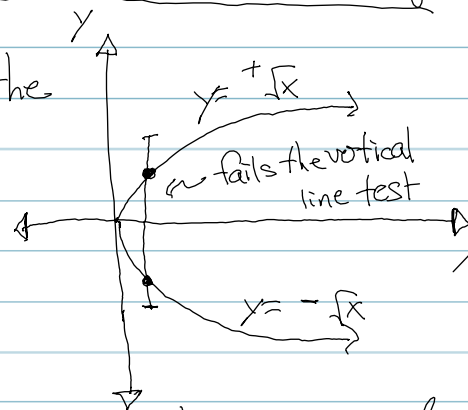 y
the
y= +√x
fails the vertical
line test
y= -√x